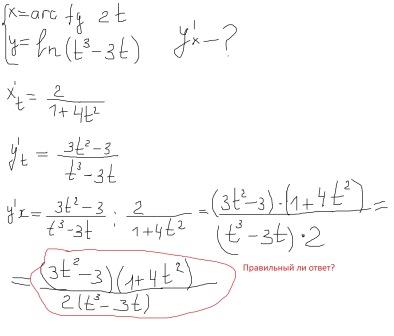 x = arc tg 2t
y = ln(t³-3t)   y'x - ?
x't = 2/(1+4t²)
y't = (3t²-3)/(t³-3t)
y'x = (3t²-3)/(t³-3t) : 2/(1+4t²) = ((3t²-3)·(1+4t²))/((t³-3t)·2) =
= ((3t²-3)(1+4t²))/(2(t³-3t))
Правильный ли ответ?